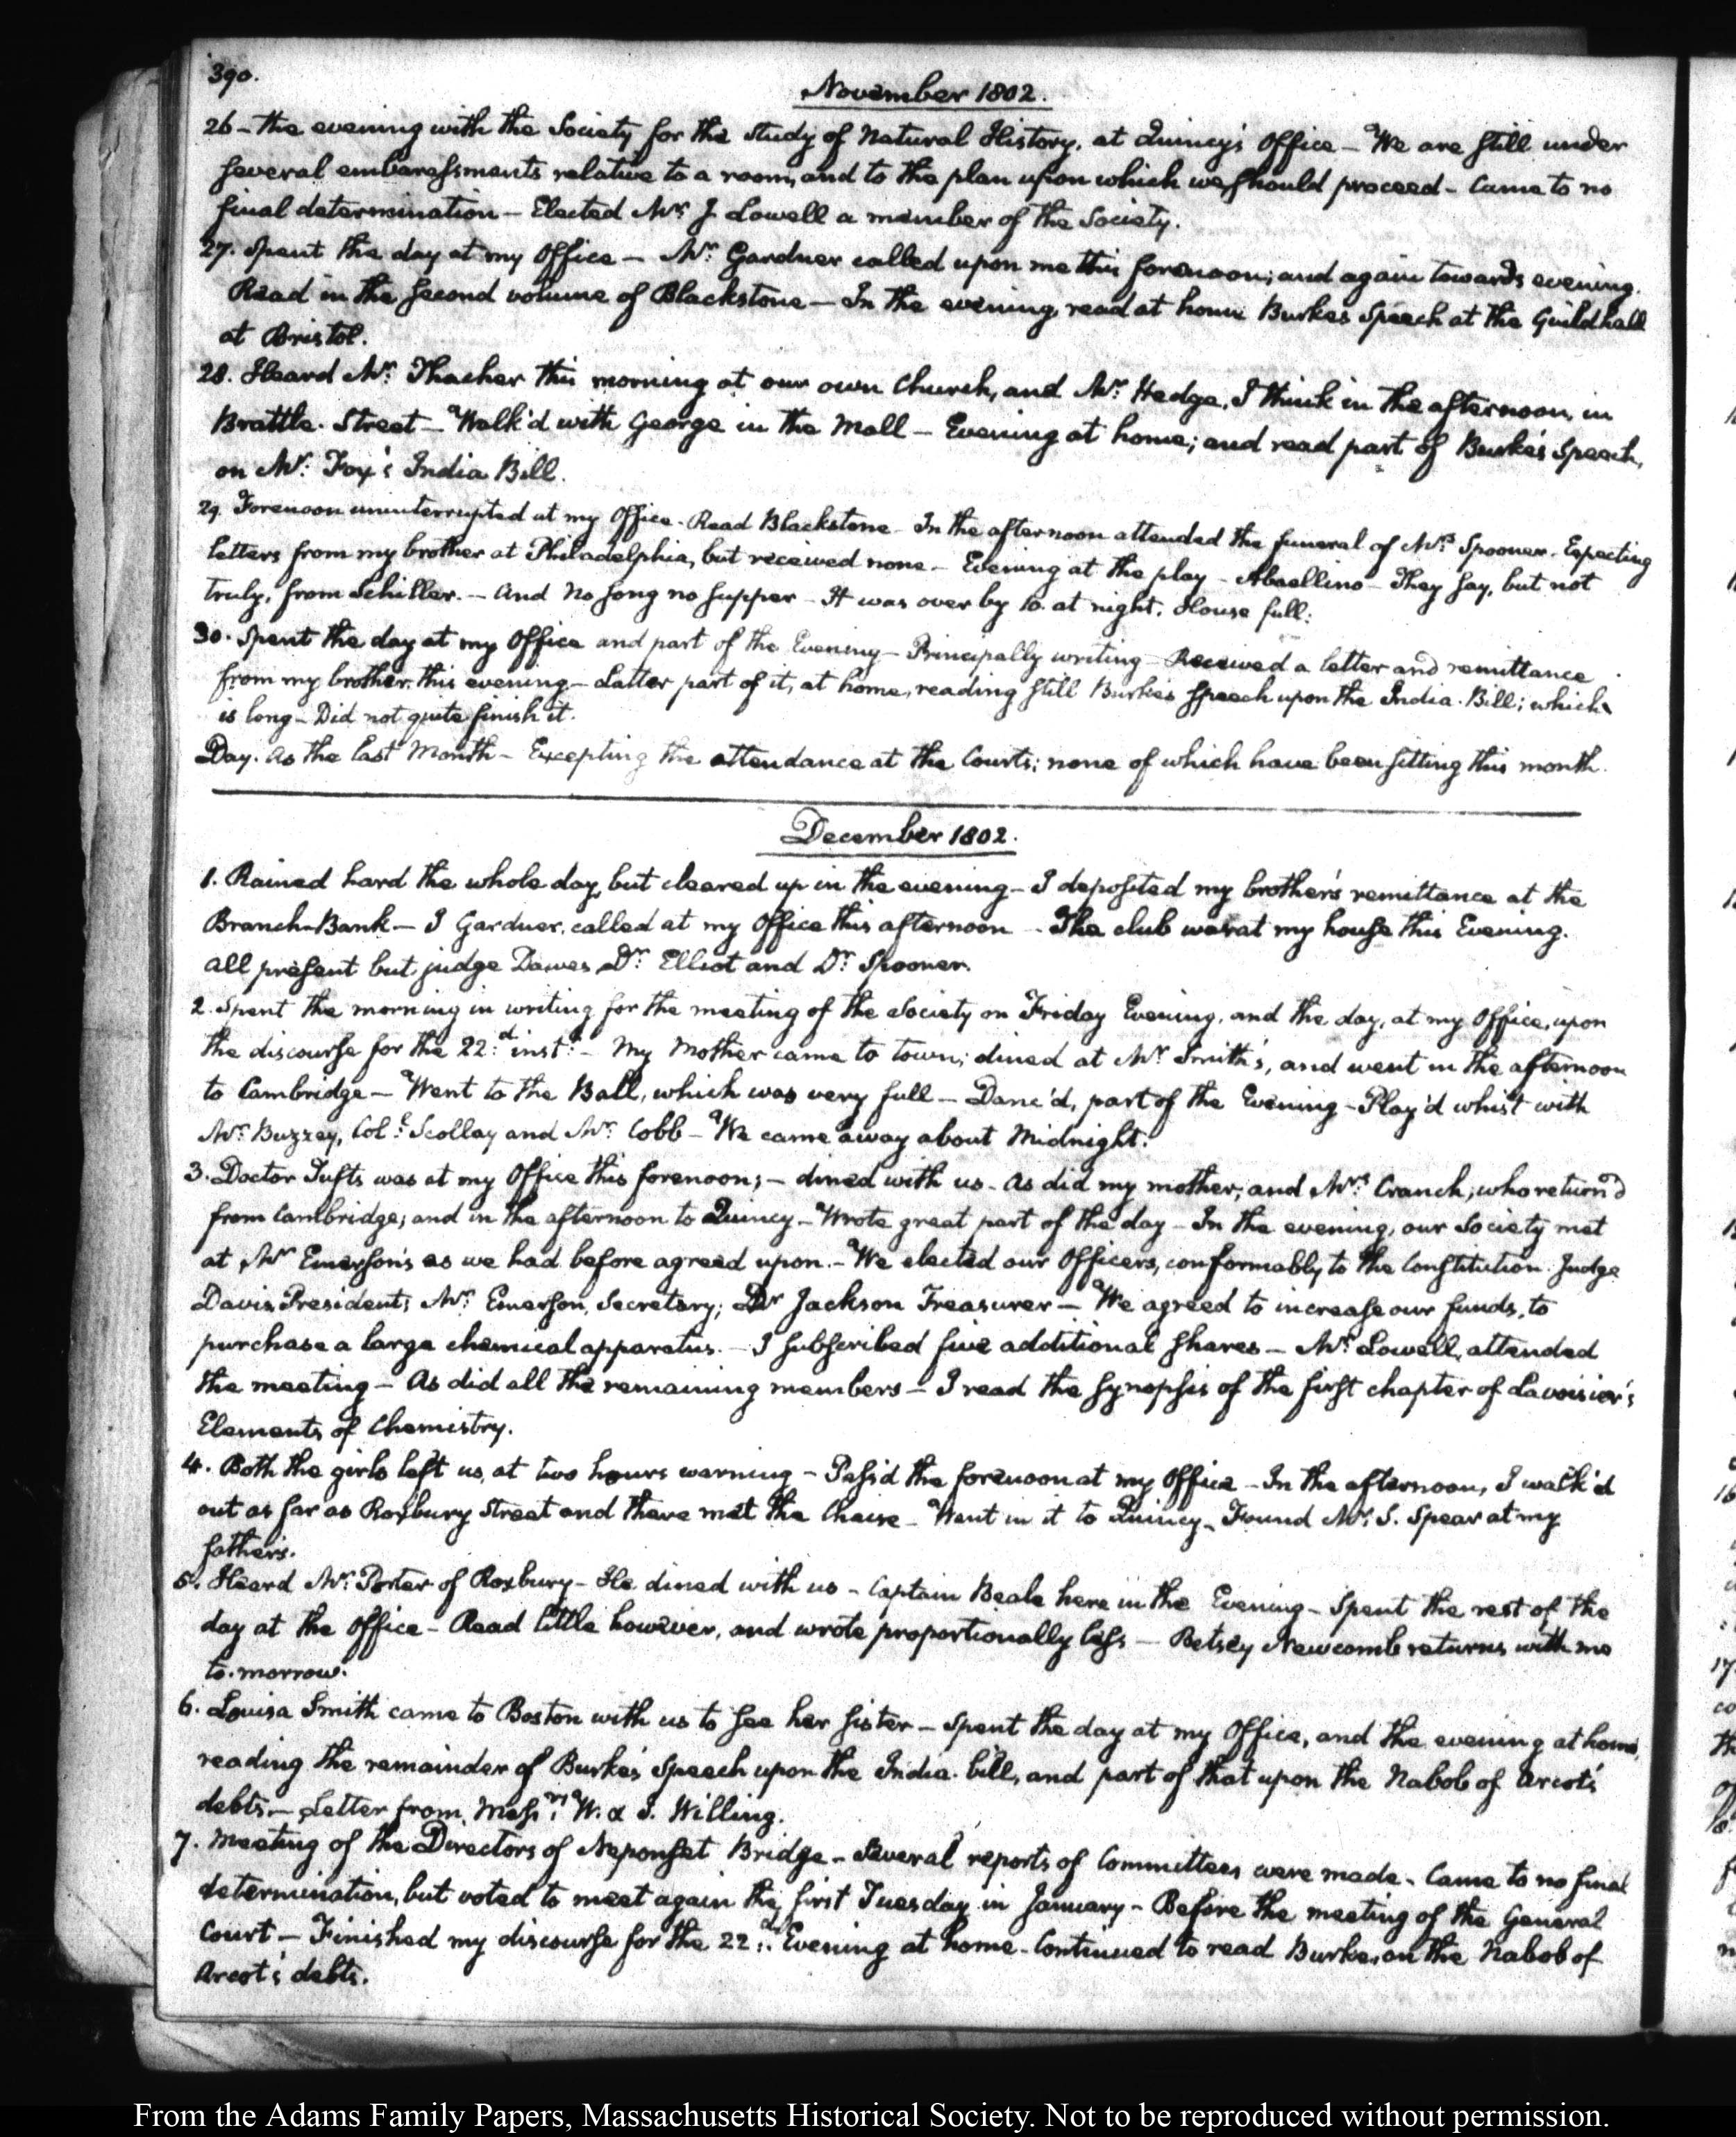 390.
November 1802.
26 - The evening with the Society for the study of Natural History, at Quincy's Office - We are still under
several embarassments relative to a room, and to the plan upon which we should proceed - Came to no
final determination - Elected Mr. J. Lowell a member of the Society.
27. Spent the day at my Office - Mr. Gardner called upon me this forenoon; and again towards evening.
Read in the second volume of Blackstone - In the evening, read at home Burkes Speech at the Guildhall
at Bristol.
28. Heard Mr. Thacher this morning at our own Church, and Mr. Hedge, I think in the afternoon, in
Brattle-Street - Walk'd with George in the Mall - Evening at home; and read part of Burke's Speech,
on Mr. Fox's India Bill.
29. Forenoon uninterrupted at my Office - Read Blackstone - In the afternoon attended the funeral of Mrs. Spooner - Expecting
letters from my brother at Philadelphia, but received none - Evening at the play - Abaellino - They say, but not
truly, from Schiller. - And No song no supper - It was over by 10. at night. House full.
30. Spent the day at my Office and part of the Evening - Principally writing - Received a letter and remittance
from my brother, this evening - Latter part of it, at home, reading still Burke's Speech upon the India-Bill; which
is long - Did not quite finish it.
Day. As the last Month - Excepting the attendance at the Courts; none of which have been sitting this month.
December 1802.
1. Rained hard the whole day, but cleared up in the evening - I deposited my brother's remittance at the
Branch-Bank - J Gardner, called at my Office this afternoon - The club was at my house this Evening.
All present but judge Dawes, Dr. Elliot and Dr. Spooner.
2. Spent the morning in writing for the meeting of the Society on Friday Evening, and the day, at my Office, upon
the discourse for the 22d. inst. - My Mother came to town; dined at Mr. Smith's, and went in the afternoon
to Cambridge - Went to the Ball, which was very full - Danc'd, part of the Evening - Play'd whist with
Mr. Buzzey, Col. Scollay and Mr. Cobb - We came away about Midnight.
3. Doctor Tufts was at my Office this forenoon; - dined with us - As did my mother; and Mrs. Cranch; who return'd
from Cambridge; and in the afternoon to Quincy - Wrote great part of the day - In the evening, our Society met
at Mr Emerson's as we had before agreed upon. - We elected our Officers, conformably to the Constitution. Judge
Davis, President; Mr. Emerson, Secretary; Dr Jackson Treasurer - We agreed to increase our funds, to
purchase a large chemical apparatus. - I subscribed five additional shares - Mr. Lowell, attended
the meeting - As did all the remaining members - I read the synopsis of the first chapter of Lavoisier's
Elements of Chemistry.
4. Both the girls left us, at two hours warning - Pass'd the forenoon at my Office - In the afternoon, I walk'd
out as far as Roxbury Street and there met the Chaise - Went in it to Quincy - Found Mr. S. Spear at my
father's.
5. Heard Mr. Porter of Roxbury - He dined with us - Captain Beale here in the Evening - Spent the rest of the
day at the Office - Read little however, and wrote proportionally less - Betsey Newcomb returns with me
to-morrow.
6. Louisa Smith came to Boston with us to see her sister - Spent the day at my Office, and the evening at home,
reading the remainder of Burke's Speech upon the India-bill, and part of that upon the Nabob of Arcot's
debts. - Letter from Messrs. W. & J. Willing.
7. Meeting of the Directors of Neponset Bridge - Several reports of Committees were made - Came to no final
determination, but voted to meet again the first Tuesday in January - Before the meeting of the General
Court - Finished my discourse for the 22d. Evening at home - Continued to read Burke, on the Nabob of
Arcot's debts.
From the Adams Family Papers, Massachusetts Historical Society. Not to be reproduced without permission.